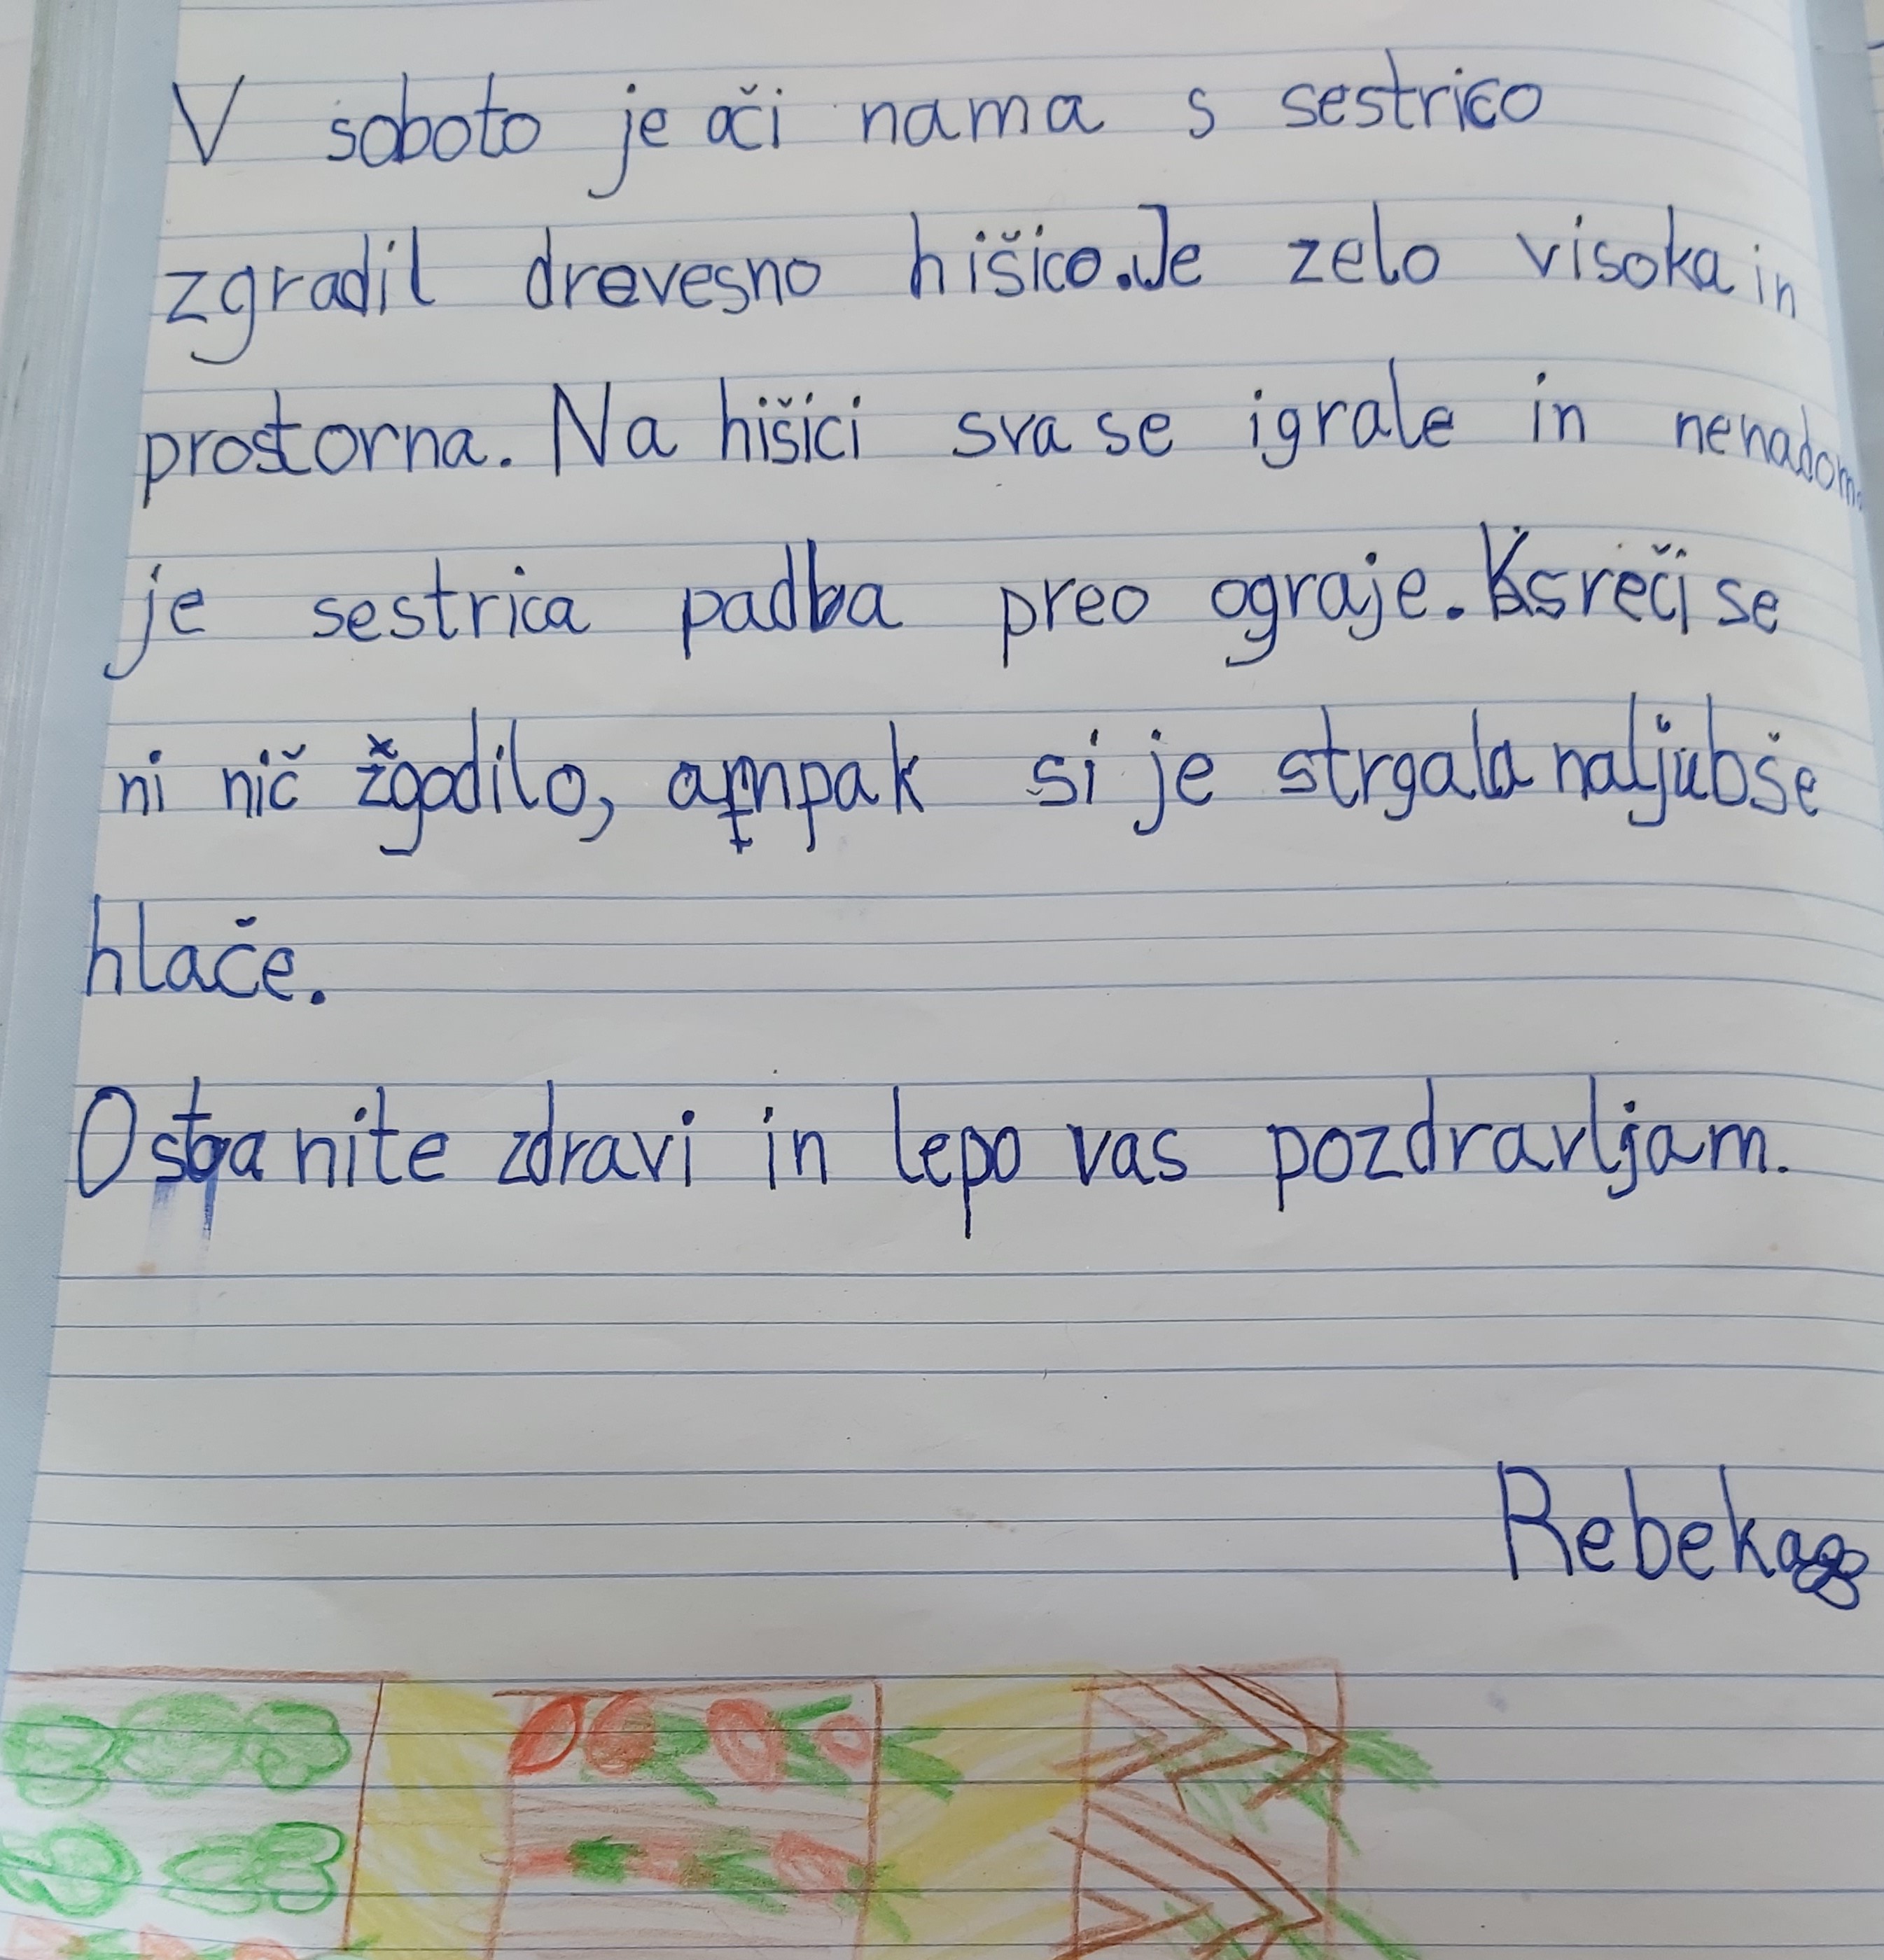 V soboto je oči nama s sestrico
zgradil drevesno hišico. Je zelo visoka in
prostorna. Na hišici sva se igrale in nenadoma
je sestrica padla preo ograje. K sreči se
ni nič zgodilo, ampak si je strgala naljubše
hlače.
Ostanite zdravi in lepo vas pozdravljam.
Rebeka